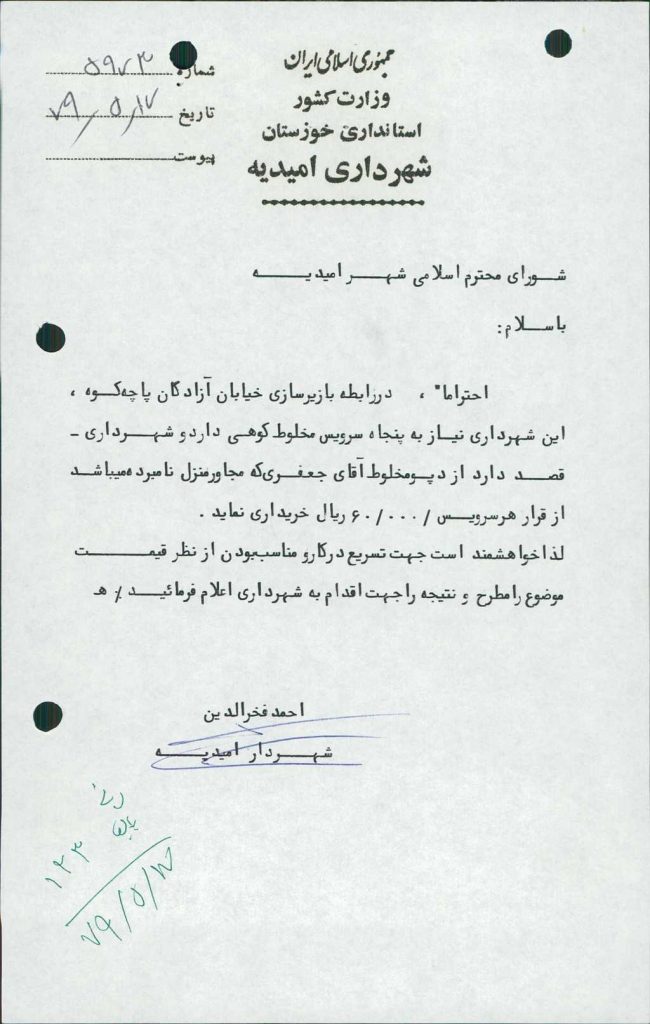 جمهوری اسلامی ایران
وزارت کشور
استانداری خوزستان
شهرداری امیدیه
شماره ۵۹۷۳
تاریخ ۷۹/۵/۱۷
پیوست
شورای محترم اسلامی شهر امیدیه
باسلام:
احتراما" ، دررابطه بازیرسازی خیابان آزادگان پاچه‌کوه ،
این شهرداری نیاز به پنجاه سرویس مخلوط کوهی دارد و شهرداری -
قصد دارد از دپومخلوط آقای جعفری‌که مجاورمنزل نامبرده‌میباشد
از قرار هرسرویس /۶۰/۰۰۰ ریال خریداری نماید .
لذاخواهشمند است جهت تسریع درکارو مناسب‌بودن از نظر قیمت
موضوع رامطرح و نتیجه راجهت اقدام به شهرداری اعلام فرمائید٪ ه
احمد فخرالدین
شهردار امیدیه
۱۲۳
۷۹/۵/۱۷